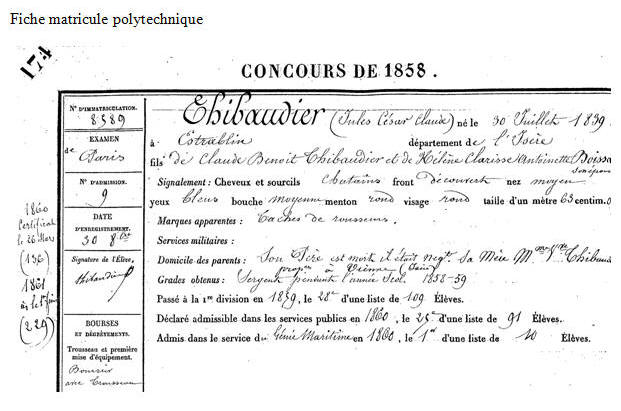 Fiche matricule polytechnique
174
CONCOURS DE 1858.
N° D'IMMATRICULATION.
8589
EXAMEN
de Paris
N° D'ADMISSION.
9
DATE
D'ENREGISTREMENT.
30 8bre
Signature de l'Élève,
Thibaudier
BOURSES
ET DÉGRÈVEMENTS.
Trousseau et première
mise d'équipement.
Boursier
avec Trousseau
1860
Certificat
le 26 Mars
(136)
1861
(229)
Thibaudier (Jules César Claude) né le 30 Juillet 1839
à Estrablin département de l'Isère
fils de Claude Benoit Thibaudier et de Hélène Clarisse Antoinette Boisso
son épouse
Signalement: Cheveux et sourcils chatains front découvert nez moyen
yeux bleus bouche moyenne menton rond visage rond taille d'un mètre 63 centim.
Marques apparentes: Taches de rousseurs.
Services militaires:
Domicile des parents: Son Père est mort il était négt. Sa Mère Mme Vve Thibaud
propre à Vienne (Isère)
Grades obtenus: Sergent pendant l'année Scol. 1858-59
Passé à la 1re division en 1859, le 28e d'une liste de 109 Élèves.
Déclaré admissible dans les services publics en 1860, le 25e d'une liste de 91 Élèves.
Admis dans le service du Génie Maritime en 1860, le 1er d'une liste de 10 Élèves.